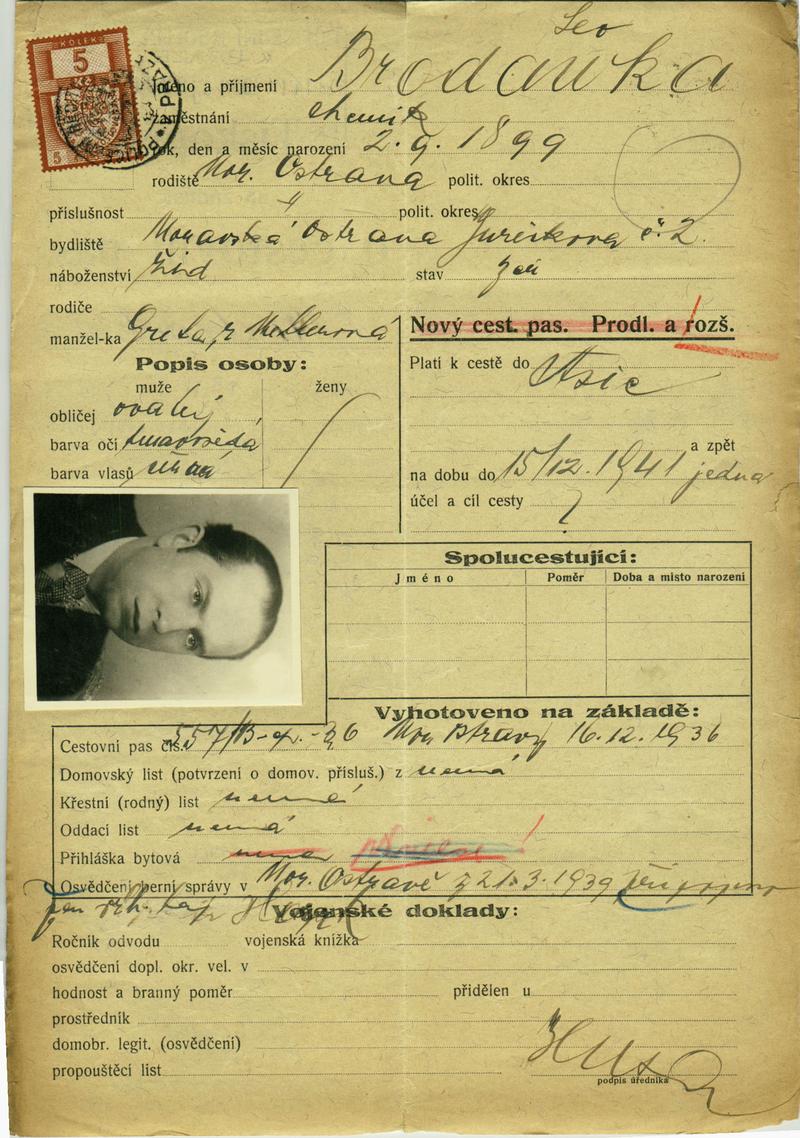 KOLEK
5
5
PRAZE
POLICEJNÍ ŘEDIT
Leo
Jméno a příjmení Brodavka
zaměstnání chemik
rok, den a měsíc narození 2.9.1899
rodiště Mor. Ostrava polit. okres
příslušnost " polit. okres
bydliště Moravská Ostrava č. 2.
náboženství žid stav žen
rodiče
manžel-ka Greta r.
Nový cest. pas. Prodl. a rozš.
Popis osoby:
muže ženy
obličej oválný
barva očí tmavošedá
barva vlasů černá
Platí k cestě do Asie
a zpět
na dobu do 15/12.1941 jedna
účel a cíl cesty ?
Spolucestující:
Jméno Poměr Doba a místo narození
Vyhotoveno na základě:
Cestovní pas čís. 557/B-36 Mor. Ostravy 16.12.1936
Domovský list (potvrzení o domov. přísluš.) z nemá
Křestní (rodný) list nemá
Oddací list nemá
Přihláška bytová nemá
Osvědčení berní správy v Mor. Ostravě z 21.3.1939
Vojenské doklady:
Ročník odvodu vojenská knížka
osvědčení dopl. okr. vel. v
hodnost a branný poměr přidělen u
prostředník
domobr. legit. (osvědčení)
propouštěcí list
podpis úředníka